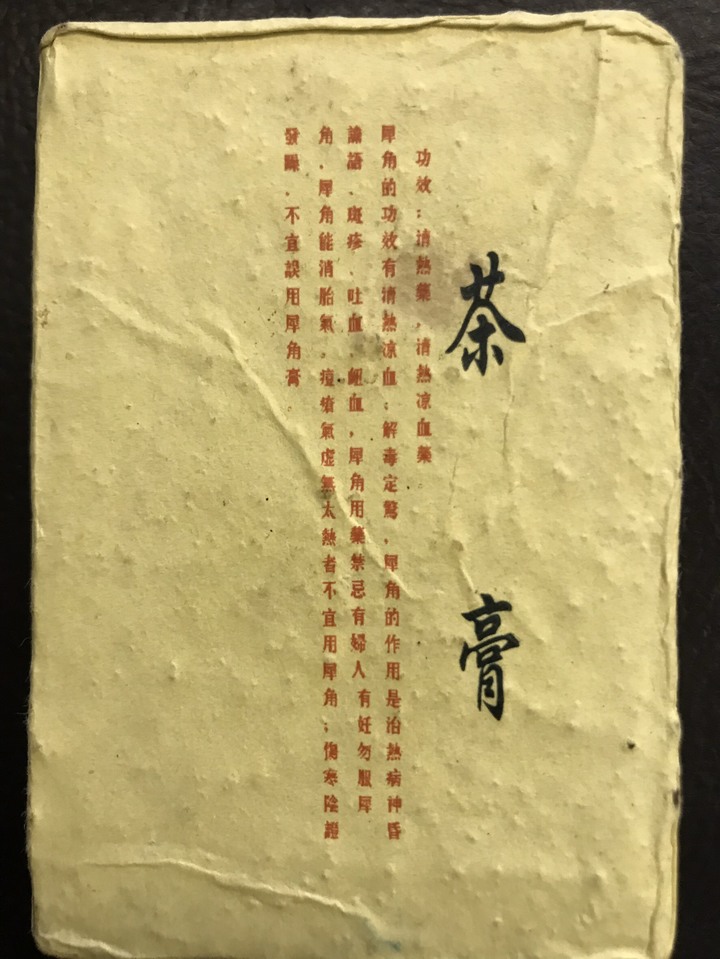 茶膏
功效：清熱藥，清熱涼血藥。
犀角的功效有清熱凉血；解毒定驚、犀角的作用是治熱病神昏
譫語、斑疹、吐血、衄血，犀角用藥禁忌有婦人有妊勿服犀
角、犀角能消胎氣。痘瘡氣虛無太熱者不宜用犀角；傷寒陰證
發躁、不宜誤用犀角膏